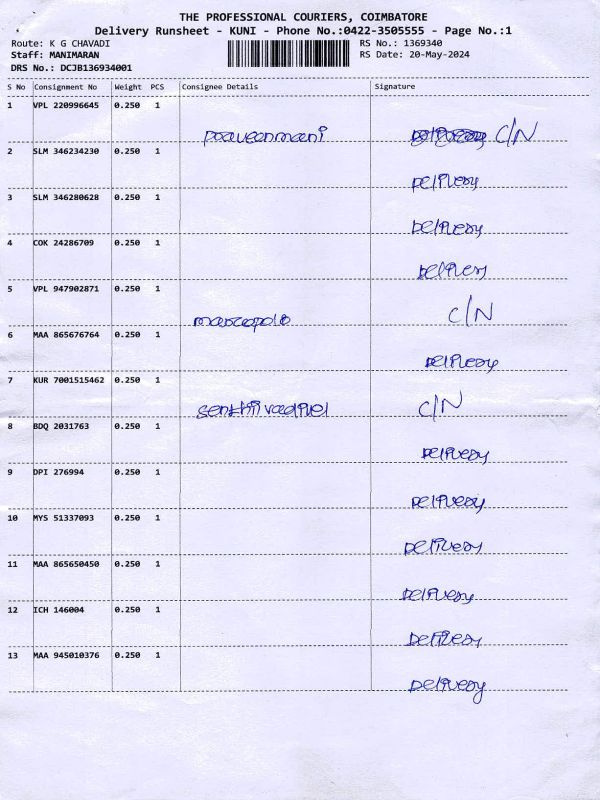 THE PROFESSIONAL COURIERS, COIMBATORE
Delivery Runsheet - KUNI - Phone No.:0422-3505555 - Page No.:1
Route: K G CHAVADI RS No.: 1369340
Staff: MANIMARAN RS Date: 20-May-2024
DRS No.: DCJB136934001
S No Consignment No Weight PCS Consignee Details Signature
1 VPL 220996645 0.250 1
praveenmani C/N
2 SLM 346234230 0.250 1
Delivery
3 SLM 346280628 0.250 1
Delivery
4 COK 24286709 0.250 1
Delivery
5 VPL 947902871 0.250 1
marcopolo C/N
6 MAA 865676764 0.250 1
Delivery
7 KUR 7001515462 0.250 1
senthilvadivel C/N
8 BDQ 2031763 0.250 1
Delivery
9 DPI 276994 0.250 1
Delivery
10 MYS 51337093 0.250 1
Delivery
11 MAA 865650450 0.250 1
Delivery
12 ICH 146004 0.250 1
Delivery
13 MAA 945010376 0.250 1
Delivery